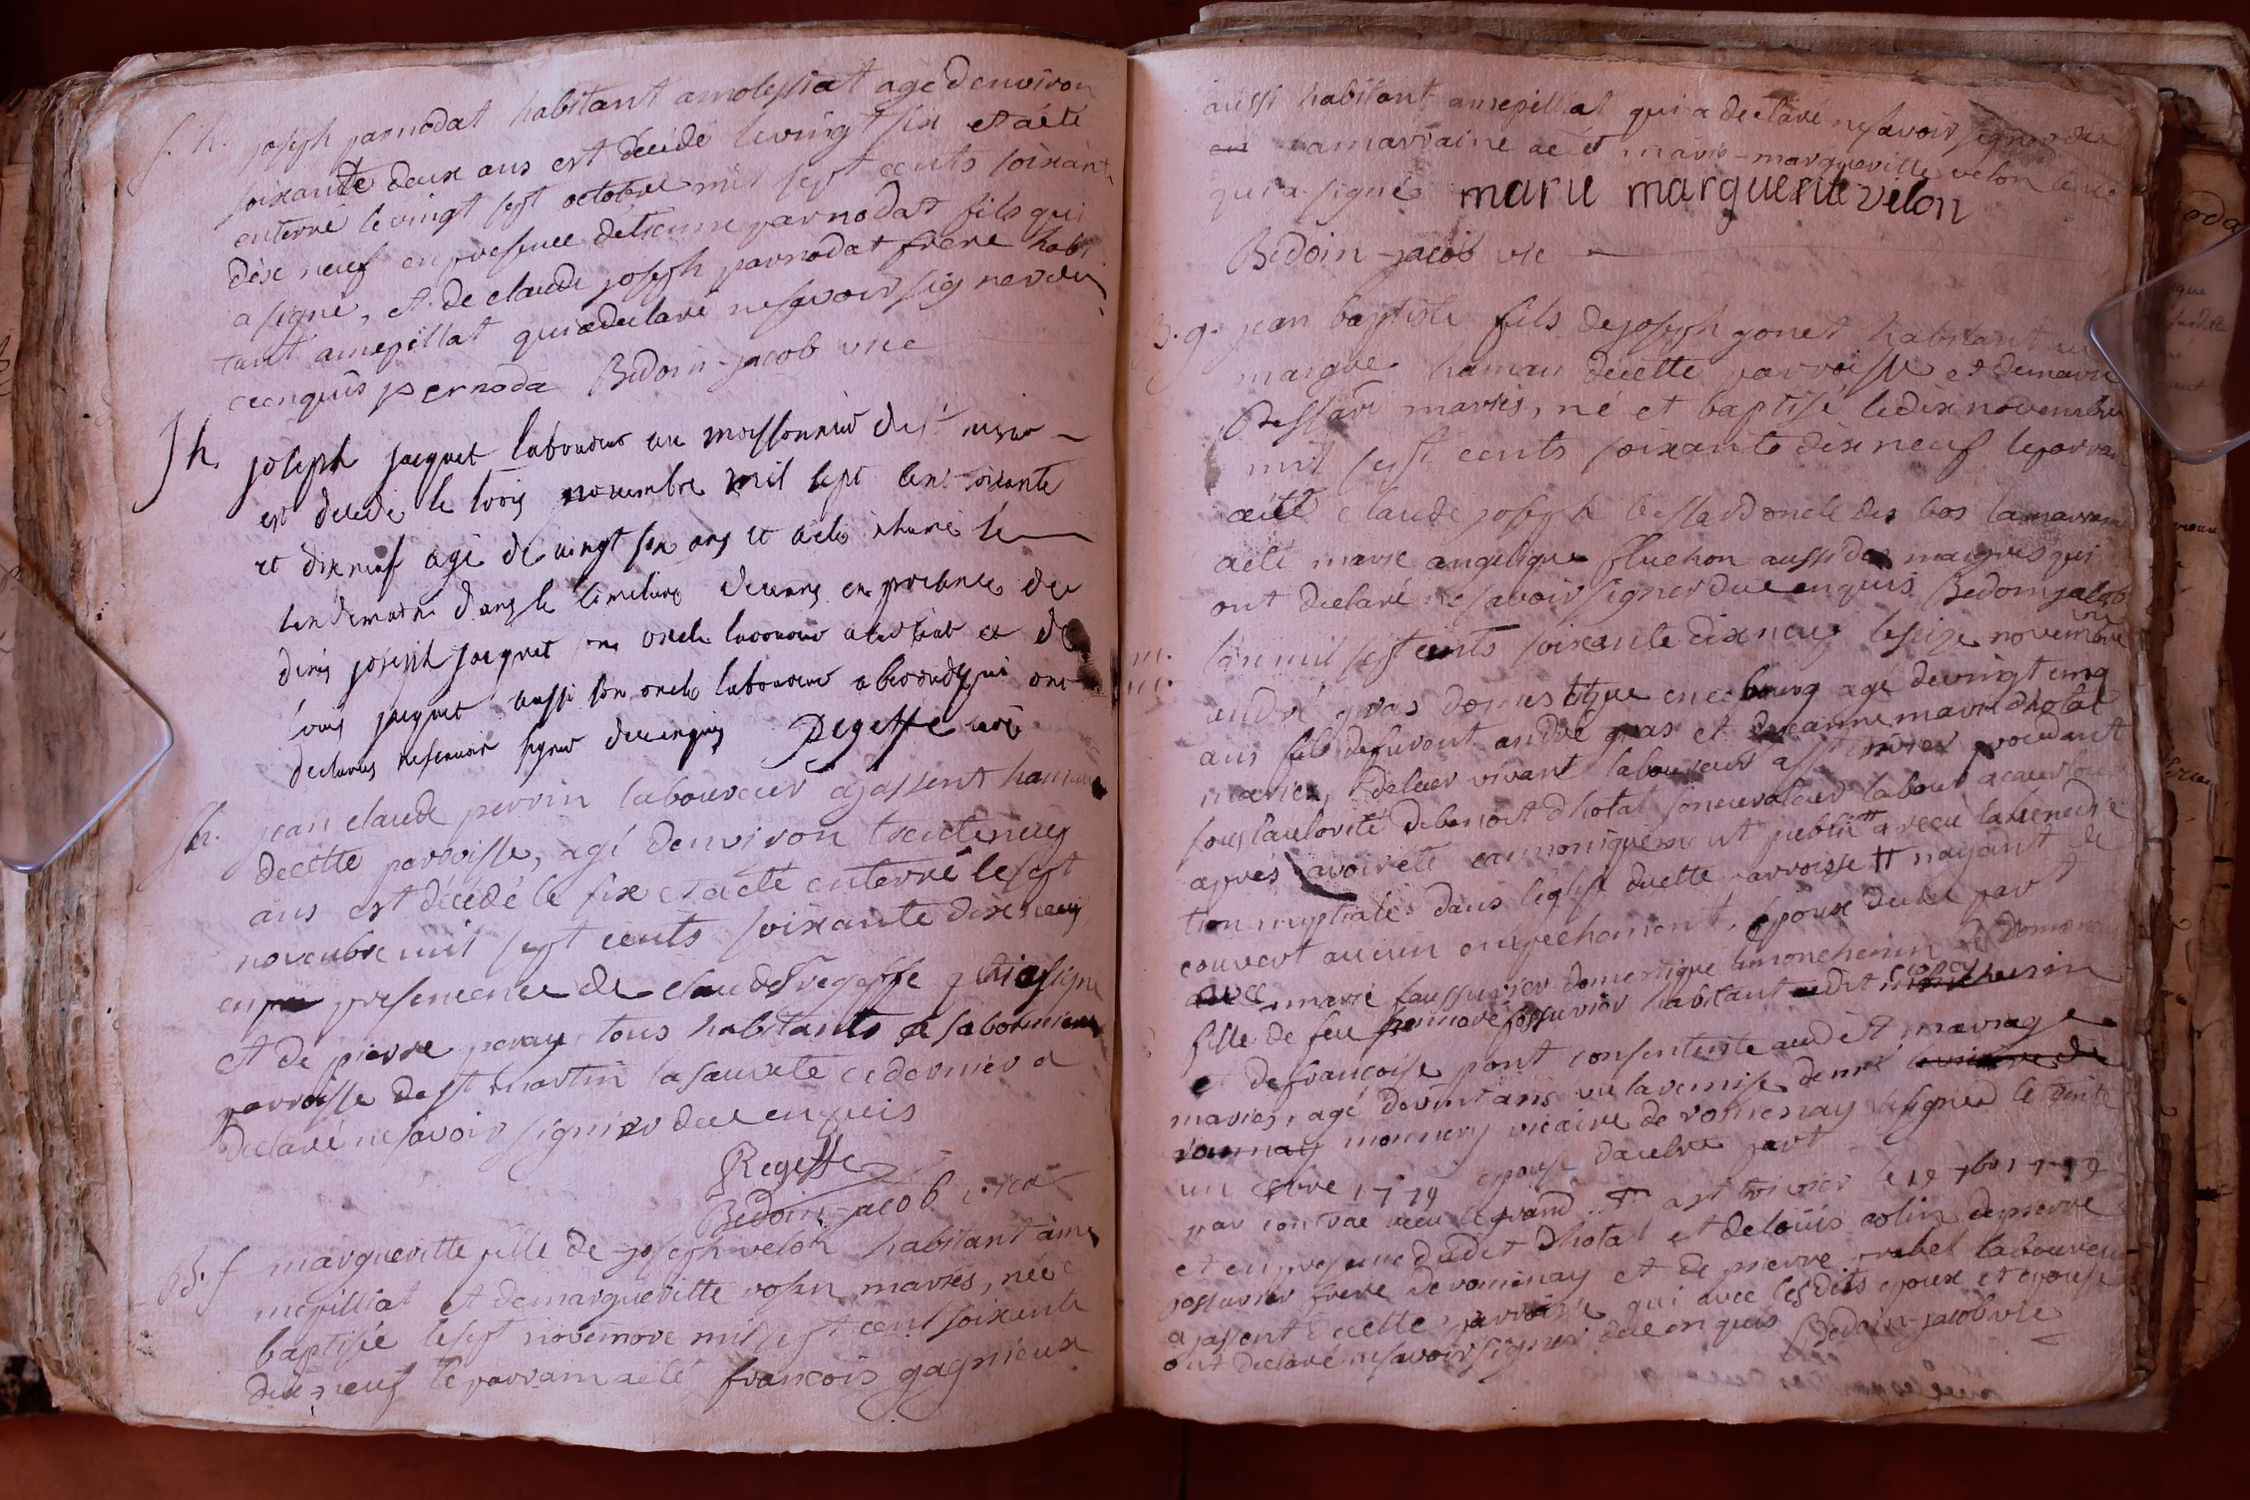 s. h. joseph parnodat habitant amolissiat agé denviron
soixante deux ans est décédé le vingt six et a été
enterré le vingt sept octobre mil sept cents soixant
dixe neuf en presence détienne parnodat fils qui
a signé, et de claude joseph parnodat frere habi
tant amepillat qui a declaré ne savoir signer de ce
enquis pernoda Bidoin-jacob vic
s h. joseph jacquet laboureur au moissonnier de
est décédé le trois novembre mil sept cent soixante
et dix neuf agé de vingt six ans et a eté inhumé le
lendemain dans le cimetiere devans en presence de
denis joseph jacquet son oncle laboureur et de
louis jacquet aussi son oncle laboureur qui ont
declarés ne scavoir signer de ce enquis Regeffe curé
s h. jean claude perrin laboureur ajassent hameau
de cette parroisse, agé denviron trente neuf
ans est décédé le six et a eté enterré le sept
novembre mil sept cents soixante dixe neuf
en presence de claude Regeffe qui a signé
et de pierre peray tous habitants
parroisse de st martin ce dernier a
declaré ne savoir signer de ce enquis
Regeffe
Bidoin-jacob vica
b. f margueritte fille de joseph velon habitant à me
mepilliat et de margueritte rosin mariés, née
baptisée le sept novembre mil sept cent soixante
dixe neuf le parrain a eté francois gagnieux
aussi habitant amepilliat qui a declaré ne savoir signer de ce
en la marraine a eté marie-margueritte velon
qui a signé marie marguerite velon
Bidoin-jacob vic
b. g. jean baptiste fils de joseph gonet habitant
maigre hameau de cette parroisse et de marie
mariés, né et baptisé le dix novembre
mil sept cents soixante dixe neuf le parrain
a eté claude joseph bessard oncle des bos la marraine
a eté marie angelique fluchon aussi des maigres qui
ont declaré ne savoir signer de ce enquis Bedoin jacob
vic
m. l'an mil sept cents soixante dixe neuf le seize novembre
andré gras domestique en ce bourg agé de vingt cinq
ans fils de furent andré gras et de jeanne marie dhotal
mariés, de leur vivant laboureurs a st trivier procedant
sous l'autorité de benoit dhotal son curateur labour a
après avoir eté canoniquement publié a recu la benedic
tion nuptiale dans léglise de cette parroisse nayant
couvert aucun empechement, époux dune part
avec marie faussurier domestique
fille de feu fossurier habitant audit
et de francoise pont consentente audit mariage
mariés, agé de vint ans vu la remise de mr
romenay monnery vicaire de romenay signed le vinte
un 1779 epouse d'autre part
par contrat recu legrand a st trivier le 19 7bre 1779
et en presence dudit dhotal et de loüis colin de pierre
fossurier frere de romenay et de pierre rabel laboureur
ajassent de cette parroisse qui avec lesdits epoux et epouse
ont declaré ne savoir signer de ce enquis Bedoin-jacob vic